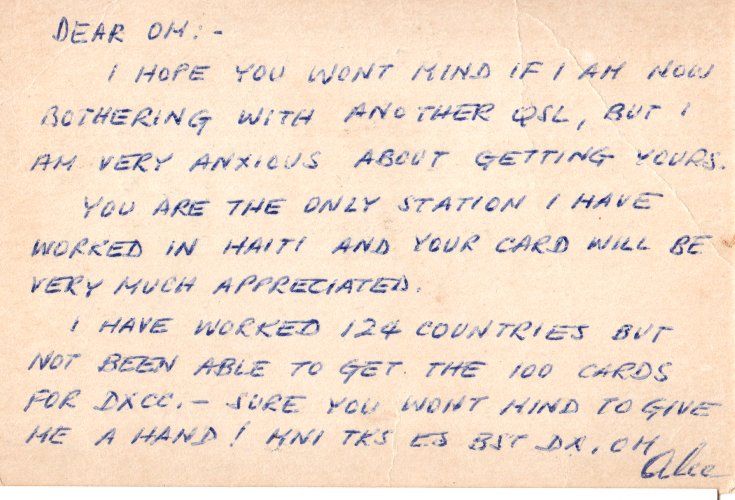 DEAR OM:-
I HOPE YOU WONT MIND IF I AM NOW
BOTHERING WITH ANOTHER QSL, BUT I
AM VERY ANXIOUS ABOUT GETTING YOURS.
YOU ARE THE ONLY STATION I HAVE
WORKED IN HAITI AND YOUR CARD WILL BE
VERY MUCH APPRECIATED.
I HAVE WORKED 124 COUNTRIES BUT
NOT BEEN ABLE TO GET THE 100 CARDS
FOR DXCC.- SURE YOU WONT MIND TO GIVE
ME A HAND! MNI TKS ES BST DX, OM